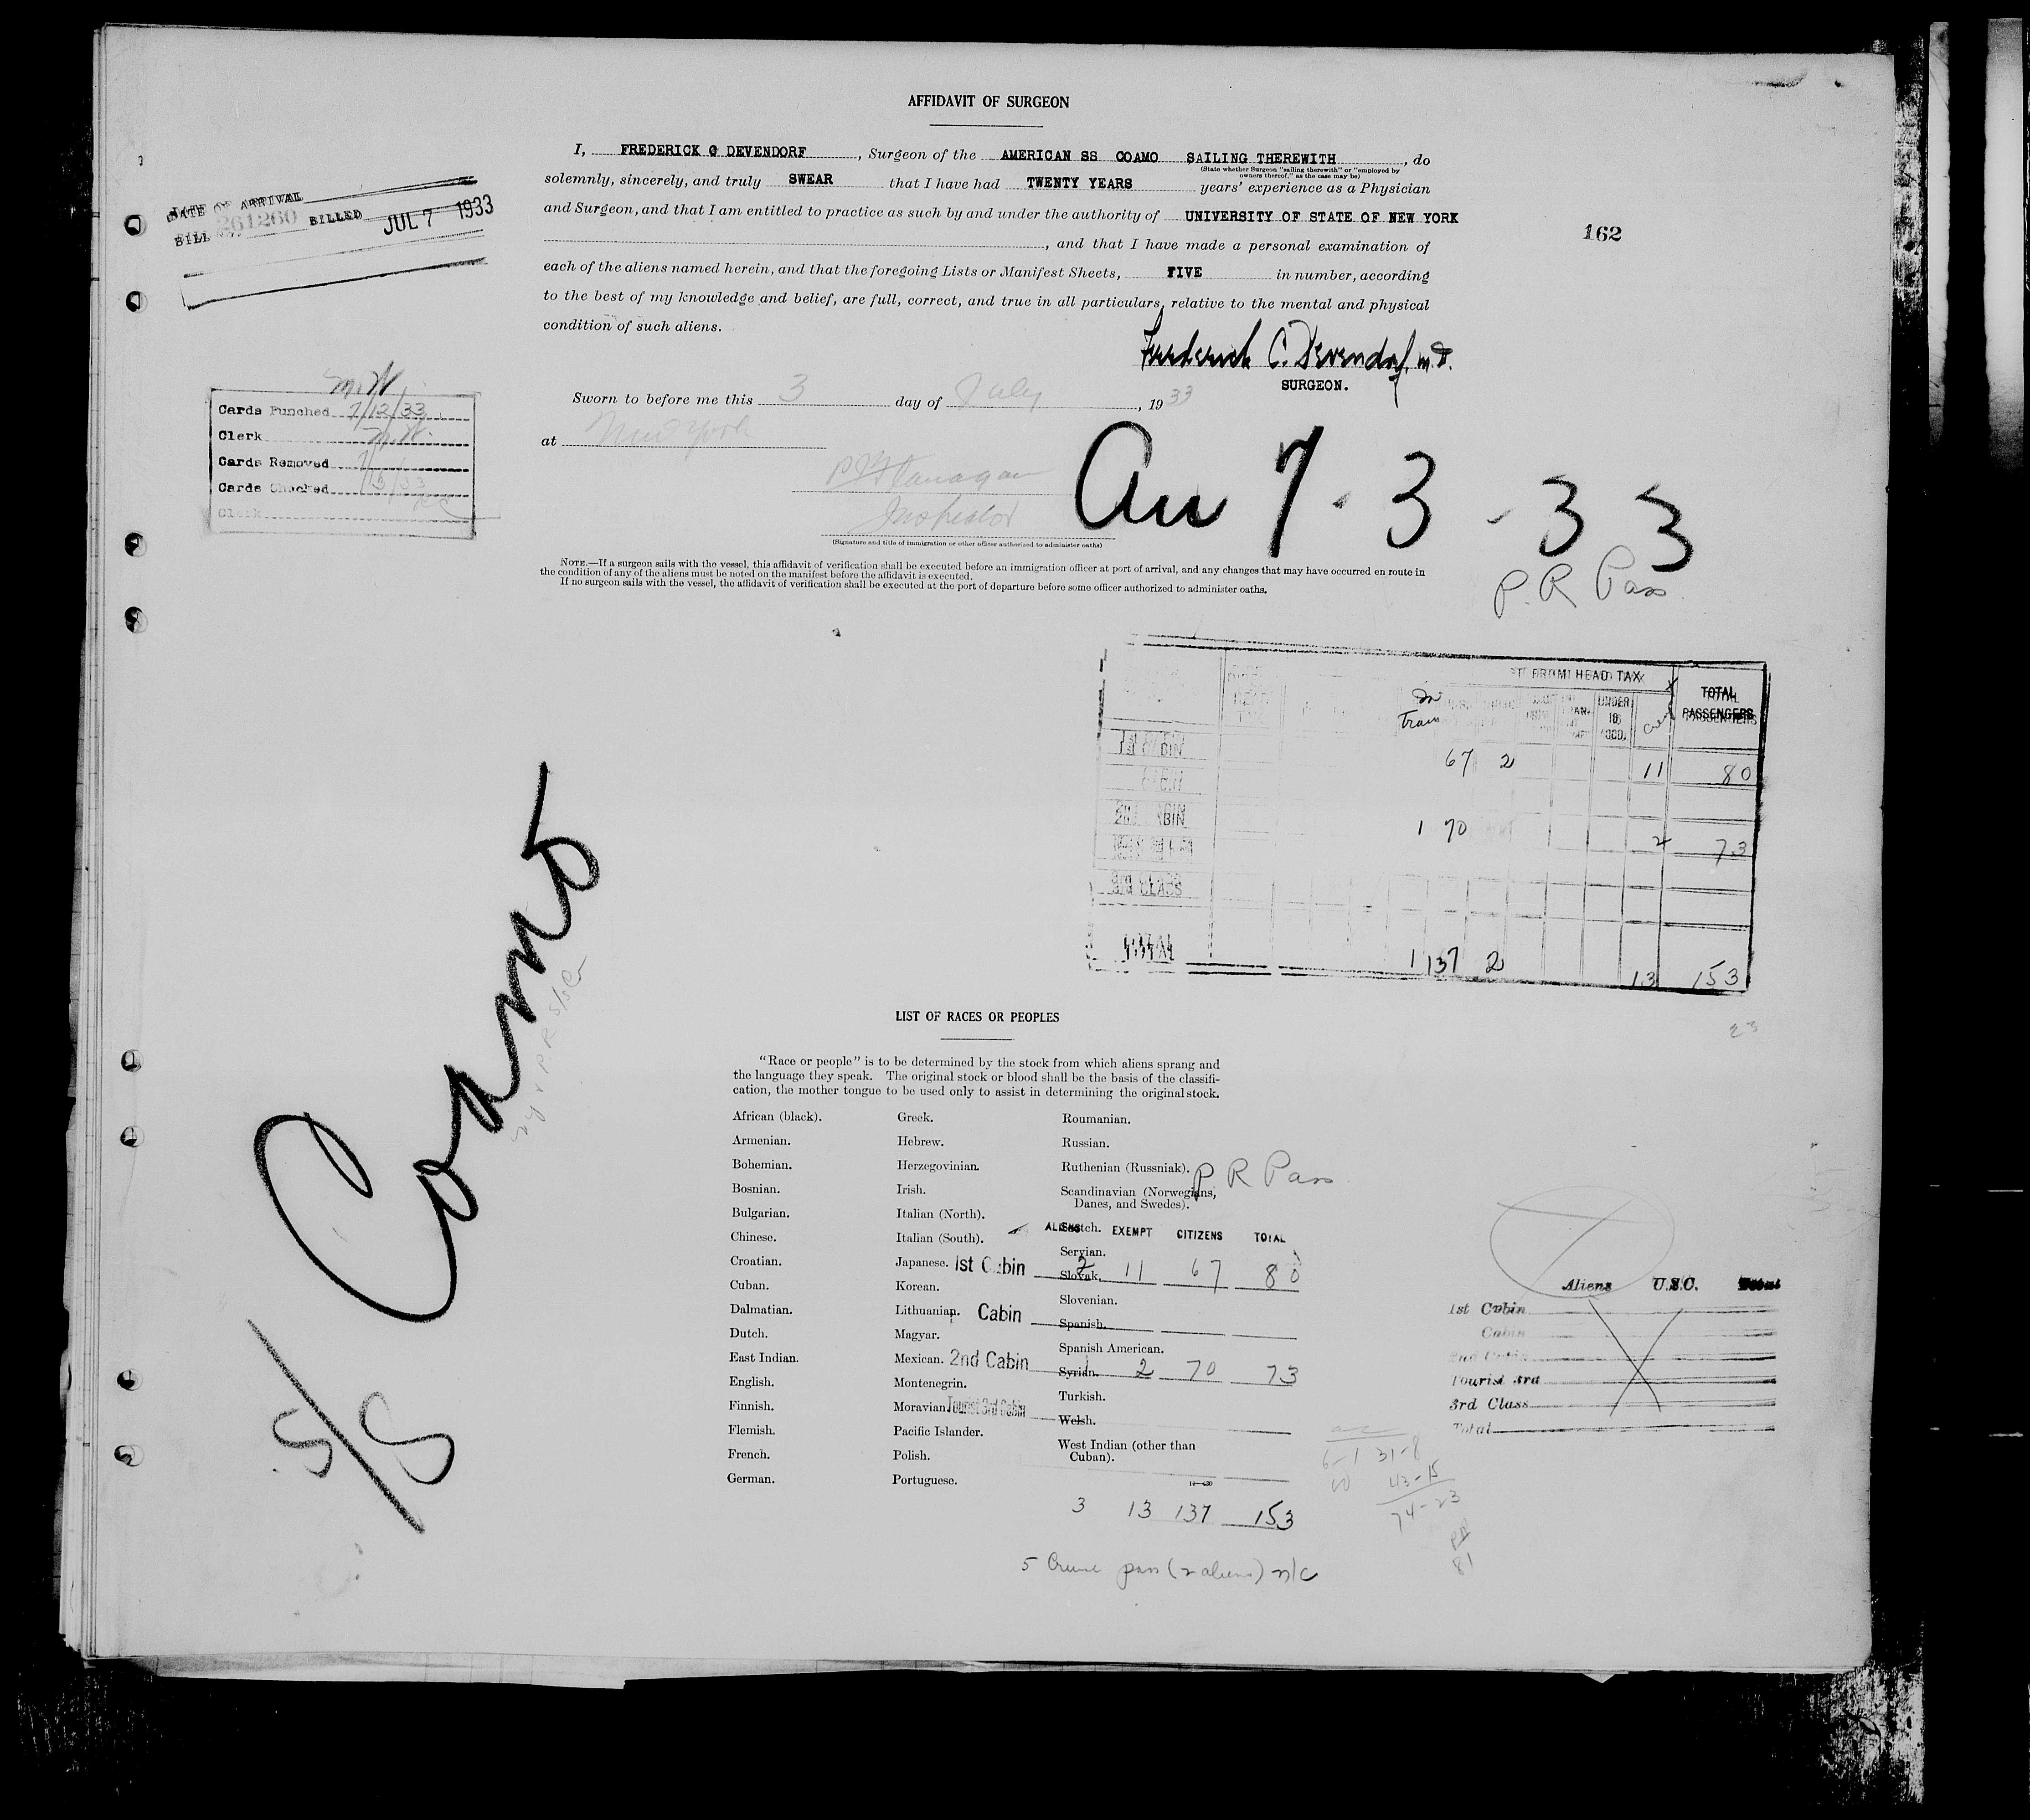 AFFIDAVIT OF SURGEON
I, FREDERICK G DEVENDORF, Surgeon of the AMERICAN SS COAMO SAILING THEREWITH, do
(State whether Surgeon "sailing therewith" or "employed by
owners thereof," as the case may be)
solemnly, sincerely, and truly SWEAR that I have had TWENTY YEARS years' experience as a Physician
and Surgeon, and that I am entitled to practice as such by and under the authority of UNIVERSITY OF STATE OF NEW YORK
, and that I have made a personal examination of
each of the aliens named herein, and that the foregoing Lists or Manifest Sheets, FIVE in number, according
to the best of my knowledge and belief, are full, correct, and true in all particulars, relative to the mental and physical
condition of such aliens.
Frederick C. Devendorf, M.D.
SURGEON.
Sworn to before me this 3 day of July, 1933
at New York
P Flanagan
Inspector
(Signature and title of immigration or other officer authorized to administer oaths)
NOTE.—If a surgeon sails with the vessel, this affidavit of verification shall be executed before an immigration officer at port of arrival, and any changes that may have occurred en route in
the condition of any of the aliens must be noted on the manifest before the affidavit is executed.
If no surgeon sails with the vessel, the affidavit of verification shall be executed at the port of departure before some officer authorized to administer oaths.
DATE OF ARRIVAL
BILL 261260 BILLED JUL 7 1933
162
M.W.
Cards Punched 7/12/33
Clerk M.W.
Cards Removed
Cards Checked
Clerk
Arr 7-3-33
P.R Pass
HEAD TAX
In Trans
UNDER 16
TOTAL PASSENGERS
1st CABIN 67 2 11 80
2nd CABIN 1 70 2 73
3rd CLASS
TOTAL 1 137 2 13 153
23
S/S Coamo
LIST OF RACES OR PEOPLES
"Race or people" is to be determined by the stock from which aliens sprang and
the language they speak. The original stock or blood shall be the basis of the classifi-
cation, the mother tongue to be used only to assist in determining the original stock.
African (black).
Armenian.
Bohemian.
Bosnian.
Bulgarian.
Chinese.
Croatian.
Cuban.
Dalmatian.
Dutch.
East Indian.
English.
Finnish.
Flemish.
French.
German.
Greek.
Hebrew.
Herzegovinian.
Irish.
Italian (North).
Italian (South).
Japanese.
Korean.
Lithuanian.
Magyar.
Mexican.
Montenegrin.
Moravian
Pacific Islander.
Polish.
Portuguese.
Roumanian.
Russian.
Ruthenian (Russniak).
Scandinavian (Norwegians,
Danes, and Swedes).
Scotch.
Servian.
Slovak.
Slovenian.
Spanish.
Spanish American.
Syrian.
Turkish.
Welsh.
West Indian (other than
Cuban).
P R Pass
ALIENS EXEMPT CITIZENS TOTAL
1st Cabin 2 11 67 80
Cabin
2nd Cabin 1 2 70 73
Tourist 3rd Cabin
3 13 137 153
5 Crime pass (2 aliens) n/c
6-1 31-8
43-15
74-23
81
Aliens U.S.C. Total
1st Cabin
Cabin
2nd Cabin
Tourist 3rd
3rd Class
Total